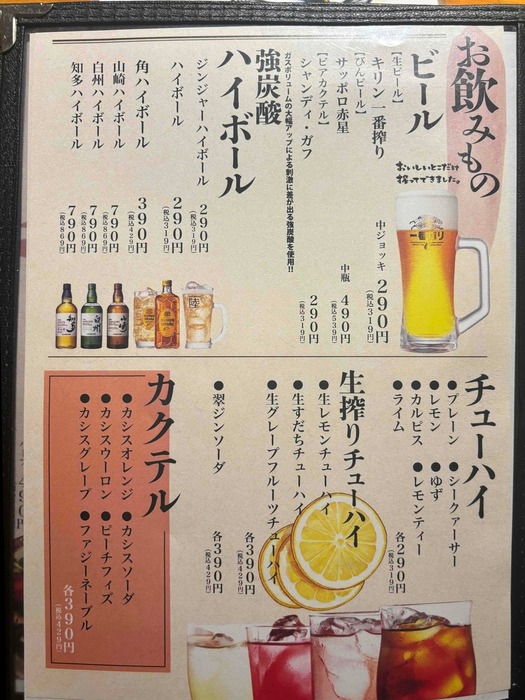 お飲みもの
ビール
【生ビール】
キリン一番搾り
中ジョッキ 290円
(税込319円)
【びんビール】
サッポロ赤星
中瓶 490円
(税込539円)
【ビアカクテル】
シャンディ・ガフ
290円
(税込319円)
おいしいとこだけ
搾ってできました。
一番搾り
ガスボリュームの大幅アップによる刺激に差が出る強炭酸を使用!!
強炭酸
ハイボール
ジンジャーハイボール 290円
(税込319円)
ハイボール 290円
(税込319円)
角ハイボール 390円
(税込429円)
山崎ハイボール 790円
(税込869円)
白州ハイボール 790円
(税込869円)
知多ハイボール 790円
(税込869円)
チューハイ
●プレーン ●シークァーサー
●レモン ●ゆず
●カルピス ●レモンティー
●ライム
各290円
(税込319円)
生搾りチューハイ
●生レモンチューハイ
●生すだちチューハイ
●生グレープフルーツチューハイ
各390円
(税込429円)
●翠ジンソーダ
各390円
(税込429円)
カクテル
●カシスオレンジ ●カシスソーダ
●カシスウーロン ●ピーチフィズ
●カシスグレープ ●ファジーネーブル
各390円
(税込429円)